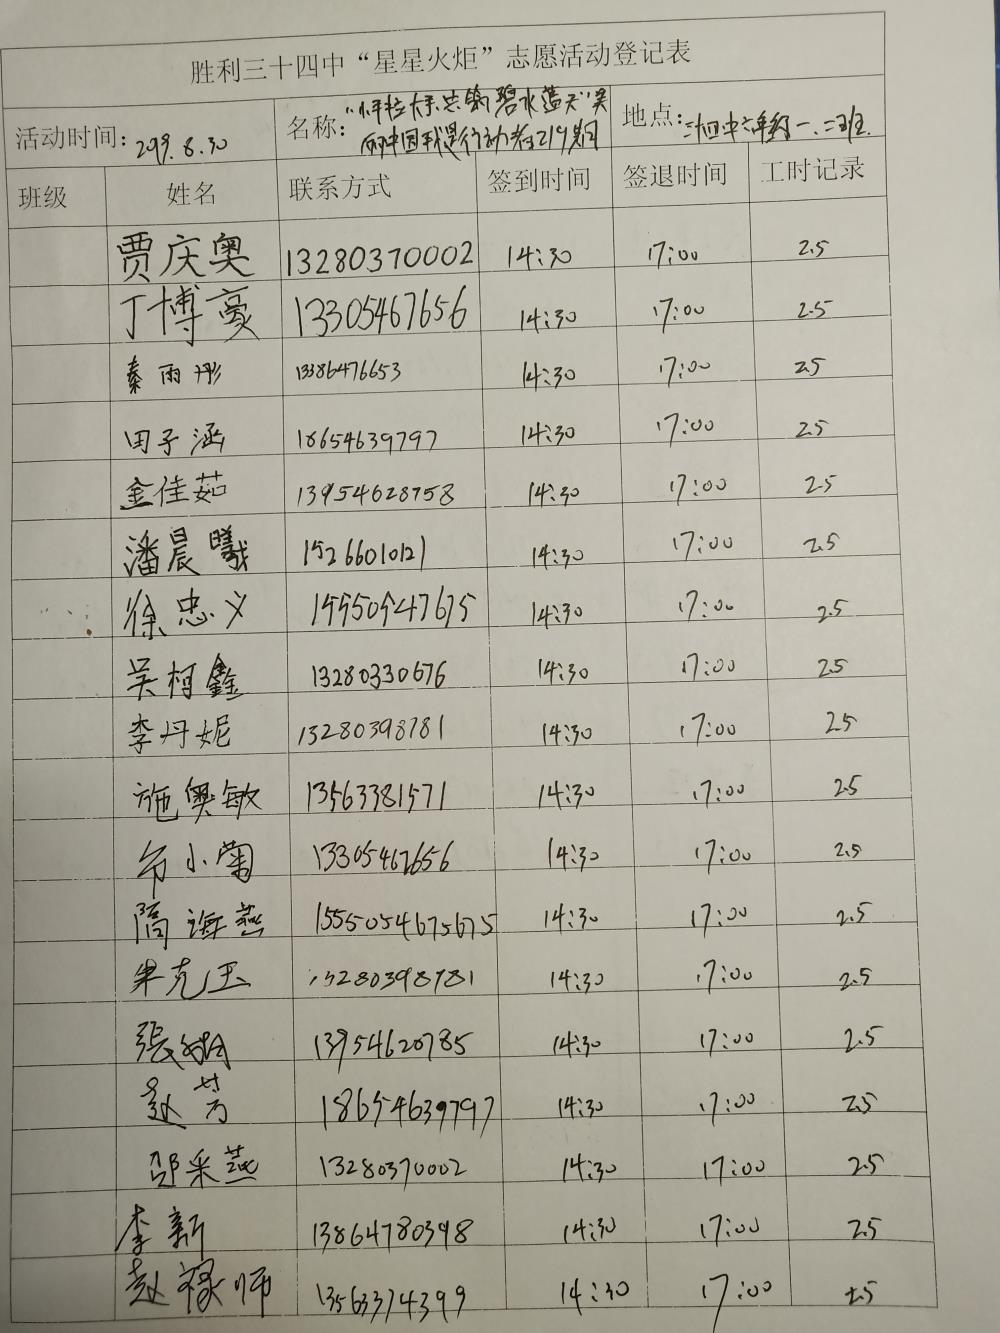 胜利三十四中“星星火炬”志愿活动登记表
活动时间: 2019.8.30 名称: “小手拉大手 碧水蓝天”美 地点: 三十四中 一、二班
丽中国我是行动者219期
班级 姓名 联系方式 签到时间 签退时间 工时记录
贾庆奥 13280370002 14:30 17:00 2.5
丁博豪 13305467656 14:30 17:00 2.5
秦雨彤 13386476653 14:30 17:00 2.5
田子涵 18654639797 14:30 17:00 2.5
金佳茹 13954628758 14:30 17:00 2.5
潘晨曦 15266010121 14:30 17:00 2.5
徐忠义 15550547675 14:30 17:00 2.5
吴柯鑫 13280330676 14:30 17:00 2.5
李丹妮 13280398781 14:30 17:00 2.5
施奥敏 13563381571 14:30 17:00 2.5
小菊 13305467656 14:30 17:00 2.5
隋海燕 1555054675675 14:30 17:00 2.5
朱克玉 13280398781 14:30 17:00 2.5
张 13954620785 14:30 17:00 2.5
赵芳 18654639797 14:30 17:00 2.5
邵采燕 13280370002 14:30 17:00 2.5
李新 13864780398 14:30 17:00 2.5
赵禄师 13563374399 14:30 17:00 2.5